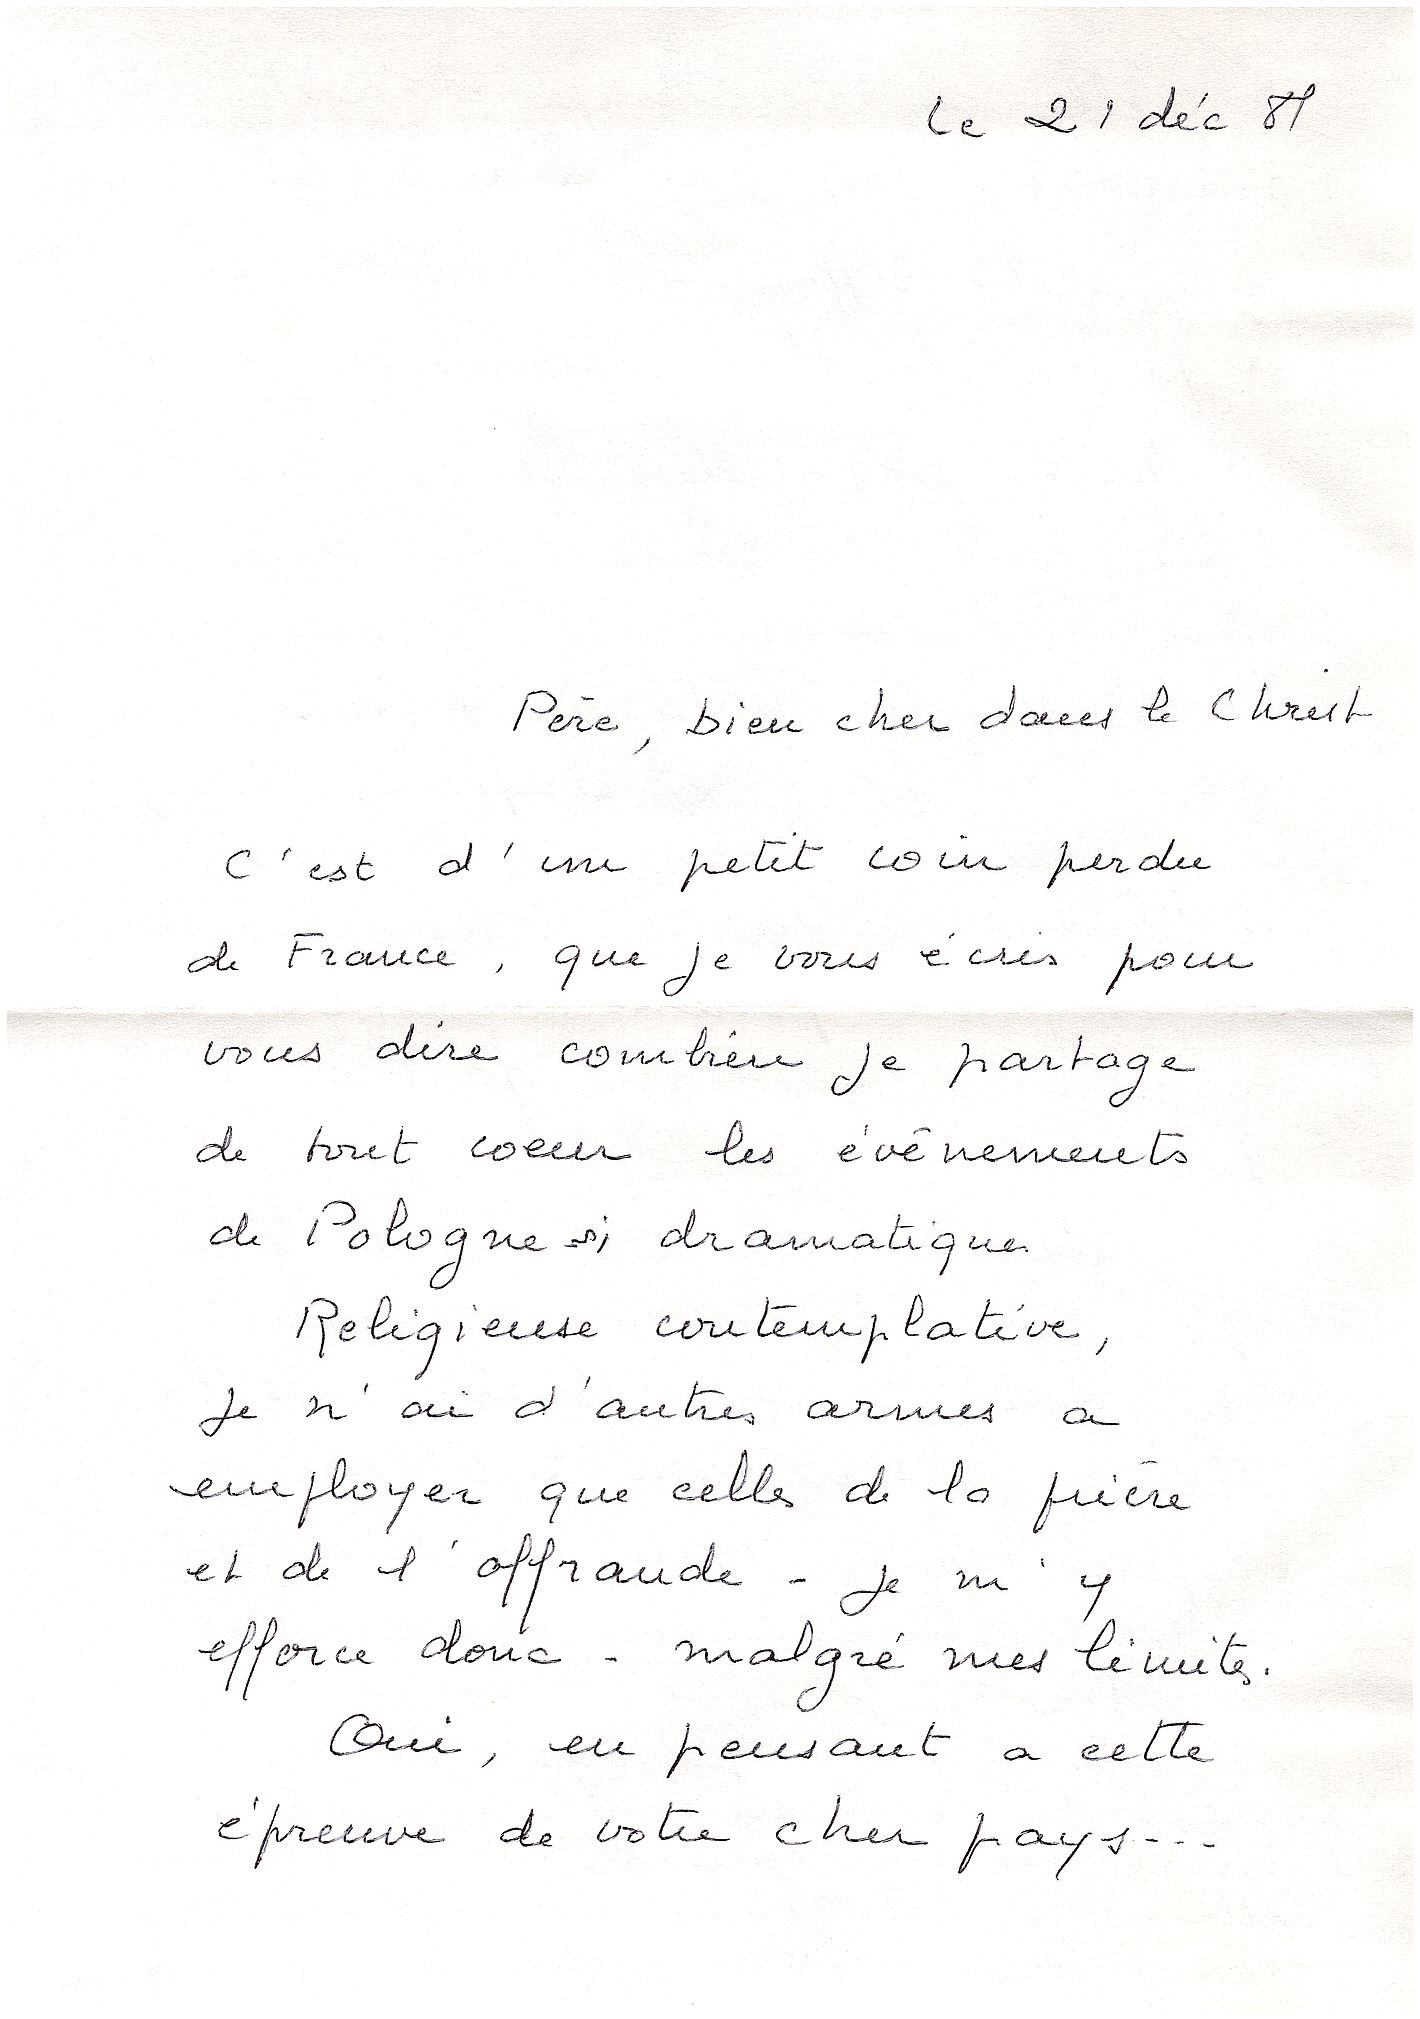 le 21 déc 81
Père, bien cher dans le Christ
C'est d'un petit coin perdu
de France, que je vous écris pour
vous dire combien je partage
de tout coeur les évènements
de Pologne si dramatiques
Religieuse contemplative,
je n'ai d'autres armes a
employer que celles de la prière
et de l'offrande - je m'y
efforce donc - malgré mes limites.
Oui, en pensant a cette
épreuve de votre cher pays---